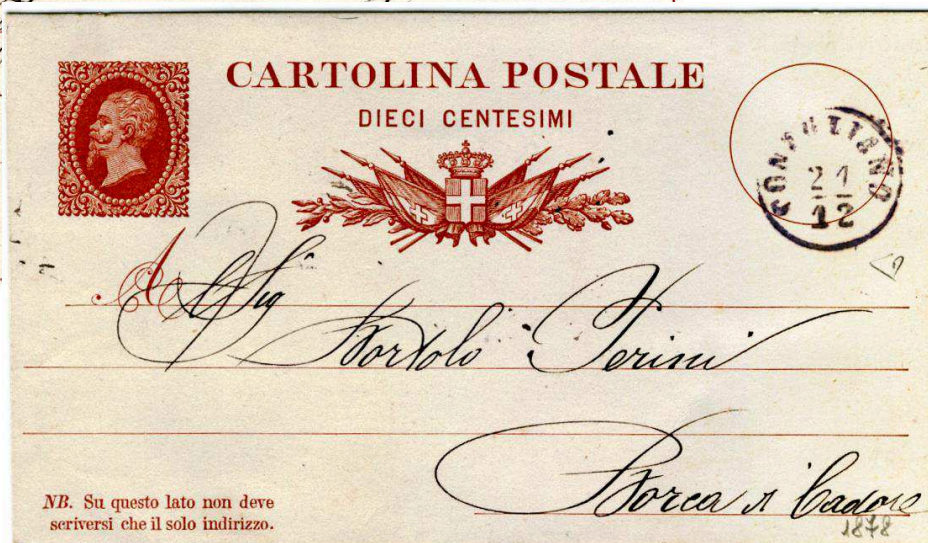 CARTOLINA POSTALE
DIECI CENTESIMI
CONEGLIANO
21
12
A
Al Sig
Bortolo
Borca di Cadore
NB. Su questo lato non deve
scriversi che il solo indirizzo.
1878